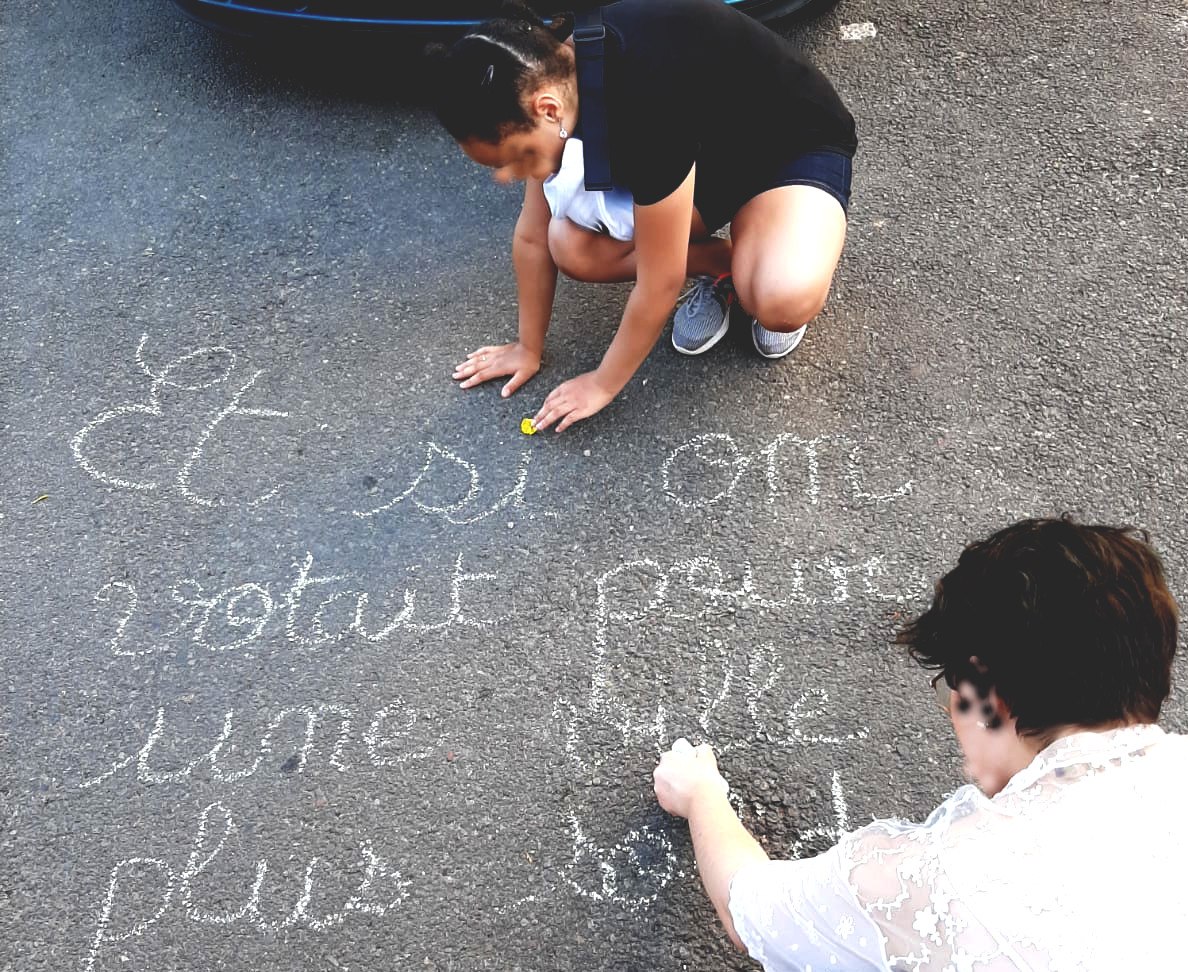 Et si on
votait pour
une ville
plus